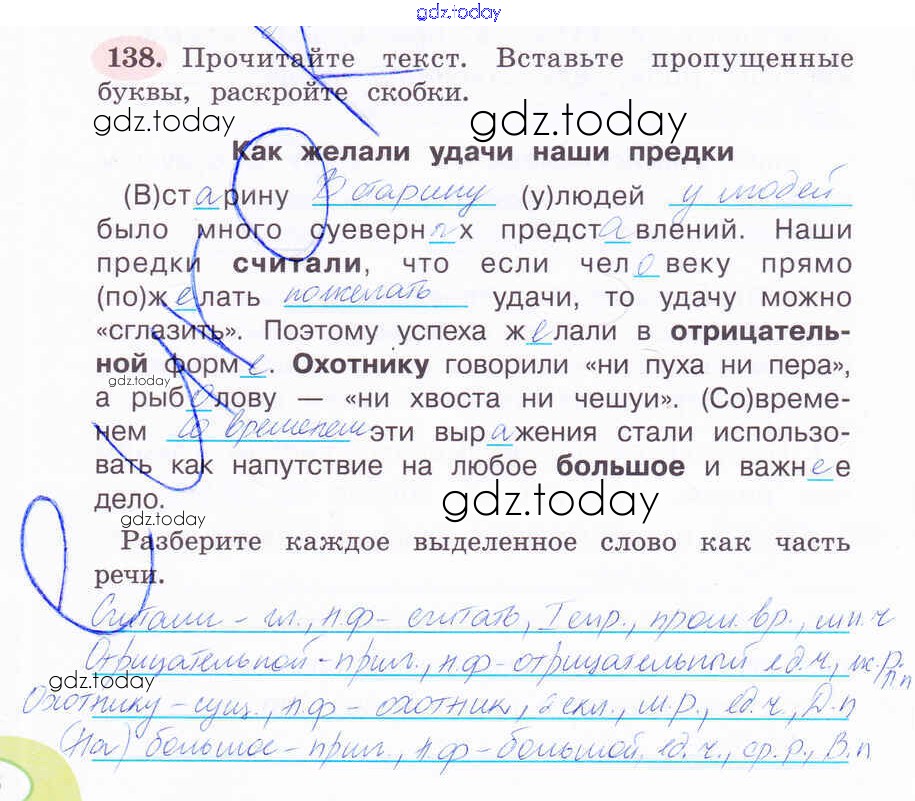 gdz.today
138. Прочитайте текст. Вставьте пропущенные
буквы, раскройте скобки.
gdz.today gdz.today
Как желали удачи наши предки
(В)старину В старину (у)людей у людей
было много суеверных представлений. Наши
предки считали, что если человеку прямо
(по)желать пожелать удачи, то удачу можно
«сглазить». Поэтому успеха желали в отрицатель-
ной форме. Охотнику говорили «ни пуха ни пера»,
gdz.today
а рыболову — «ни хвоста ни чешуи». (Со)време-
нем Со временем эти выражения стали использо-
вать как напутствие на любое большое и важное
дело.
gdz.today gdz.today
Разберите каждое выделенное слово как часть
речи.
Считали – гл., н.ф – считать, I спр., прош. вр., мн.ч
Отрицательной – прил., н.ф – отрицательный ед.ч., ж.р., п.п
gdz.today
Охотнику – сущ., н.ф – охотник, 2 скл., м.р., ед.ч., Д.п
(На) большое – прил., н.ф – большой, ед.ч., ср.р., В.п